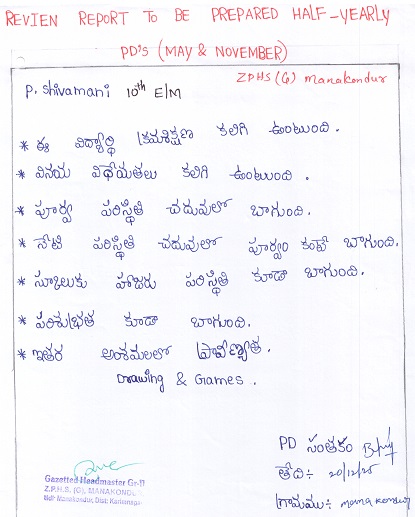 REVIEN REPORT TO BE PREPARED HALF-YEARLY
PD'S (MAY & NOVEMBER)
ZPHS (G) Manakondur
P. Shivamani 10th E/M
* ఈ విద్యార్థి క్రమశిక్షణ కలిగి ఉంటుంది.
* వినయ విధేయతలు కలిగి ఉంటుంది.
* పూర్వ పరిస్థితి చదువులో బాగుంది.
* నేటి పరిస్థితి చదువులో పూర్వం కంటే బాగుంది.
* స్కూలుకు హాజరు పరిస్థితి కూడా బాగుంది.
* పరిశుభ్రత కూడా బాగుంది.
* ఇతర అంశములలో ప్రావీణ్యత.
Drawing & Games.
PD సంతకం
తేది:- 20/12/25
గ్రామము:- manakondur
Gazetted Headmaster Gr-II
Z.P.H.S. (G), MANAKONDUR
Mdl: Manakondur, Dist: Karimnagar